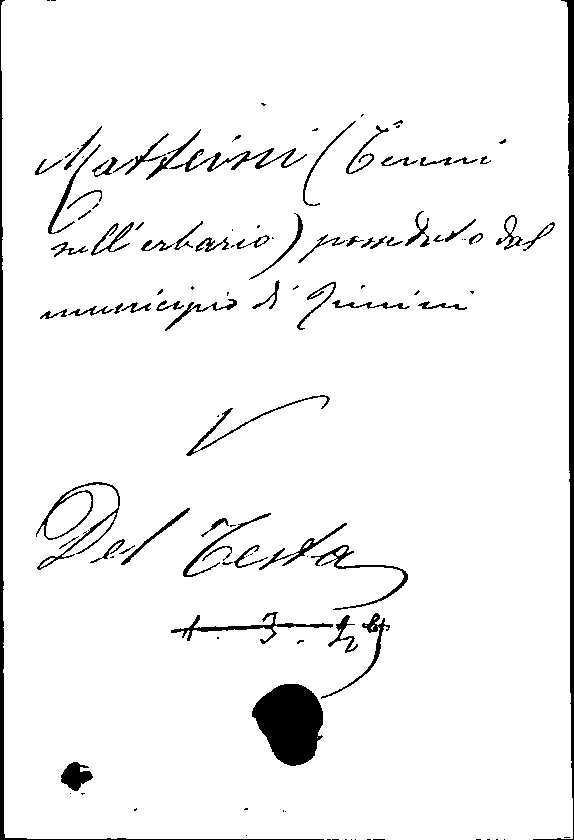 Matteini (Cenni
sull'erbario) posseduto dal
municipio di Rimini
V
Del Testa
1. 3.